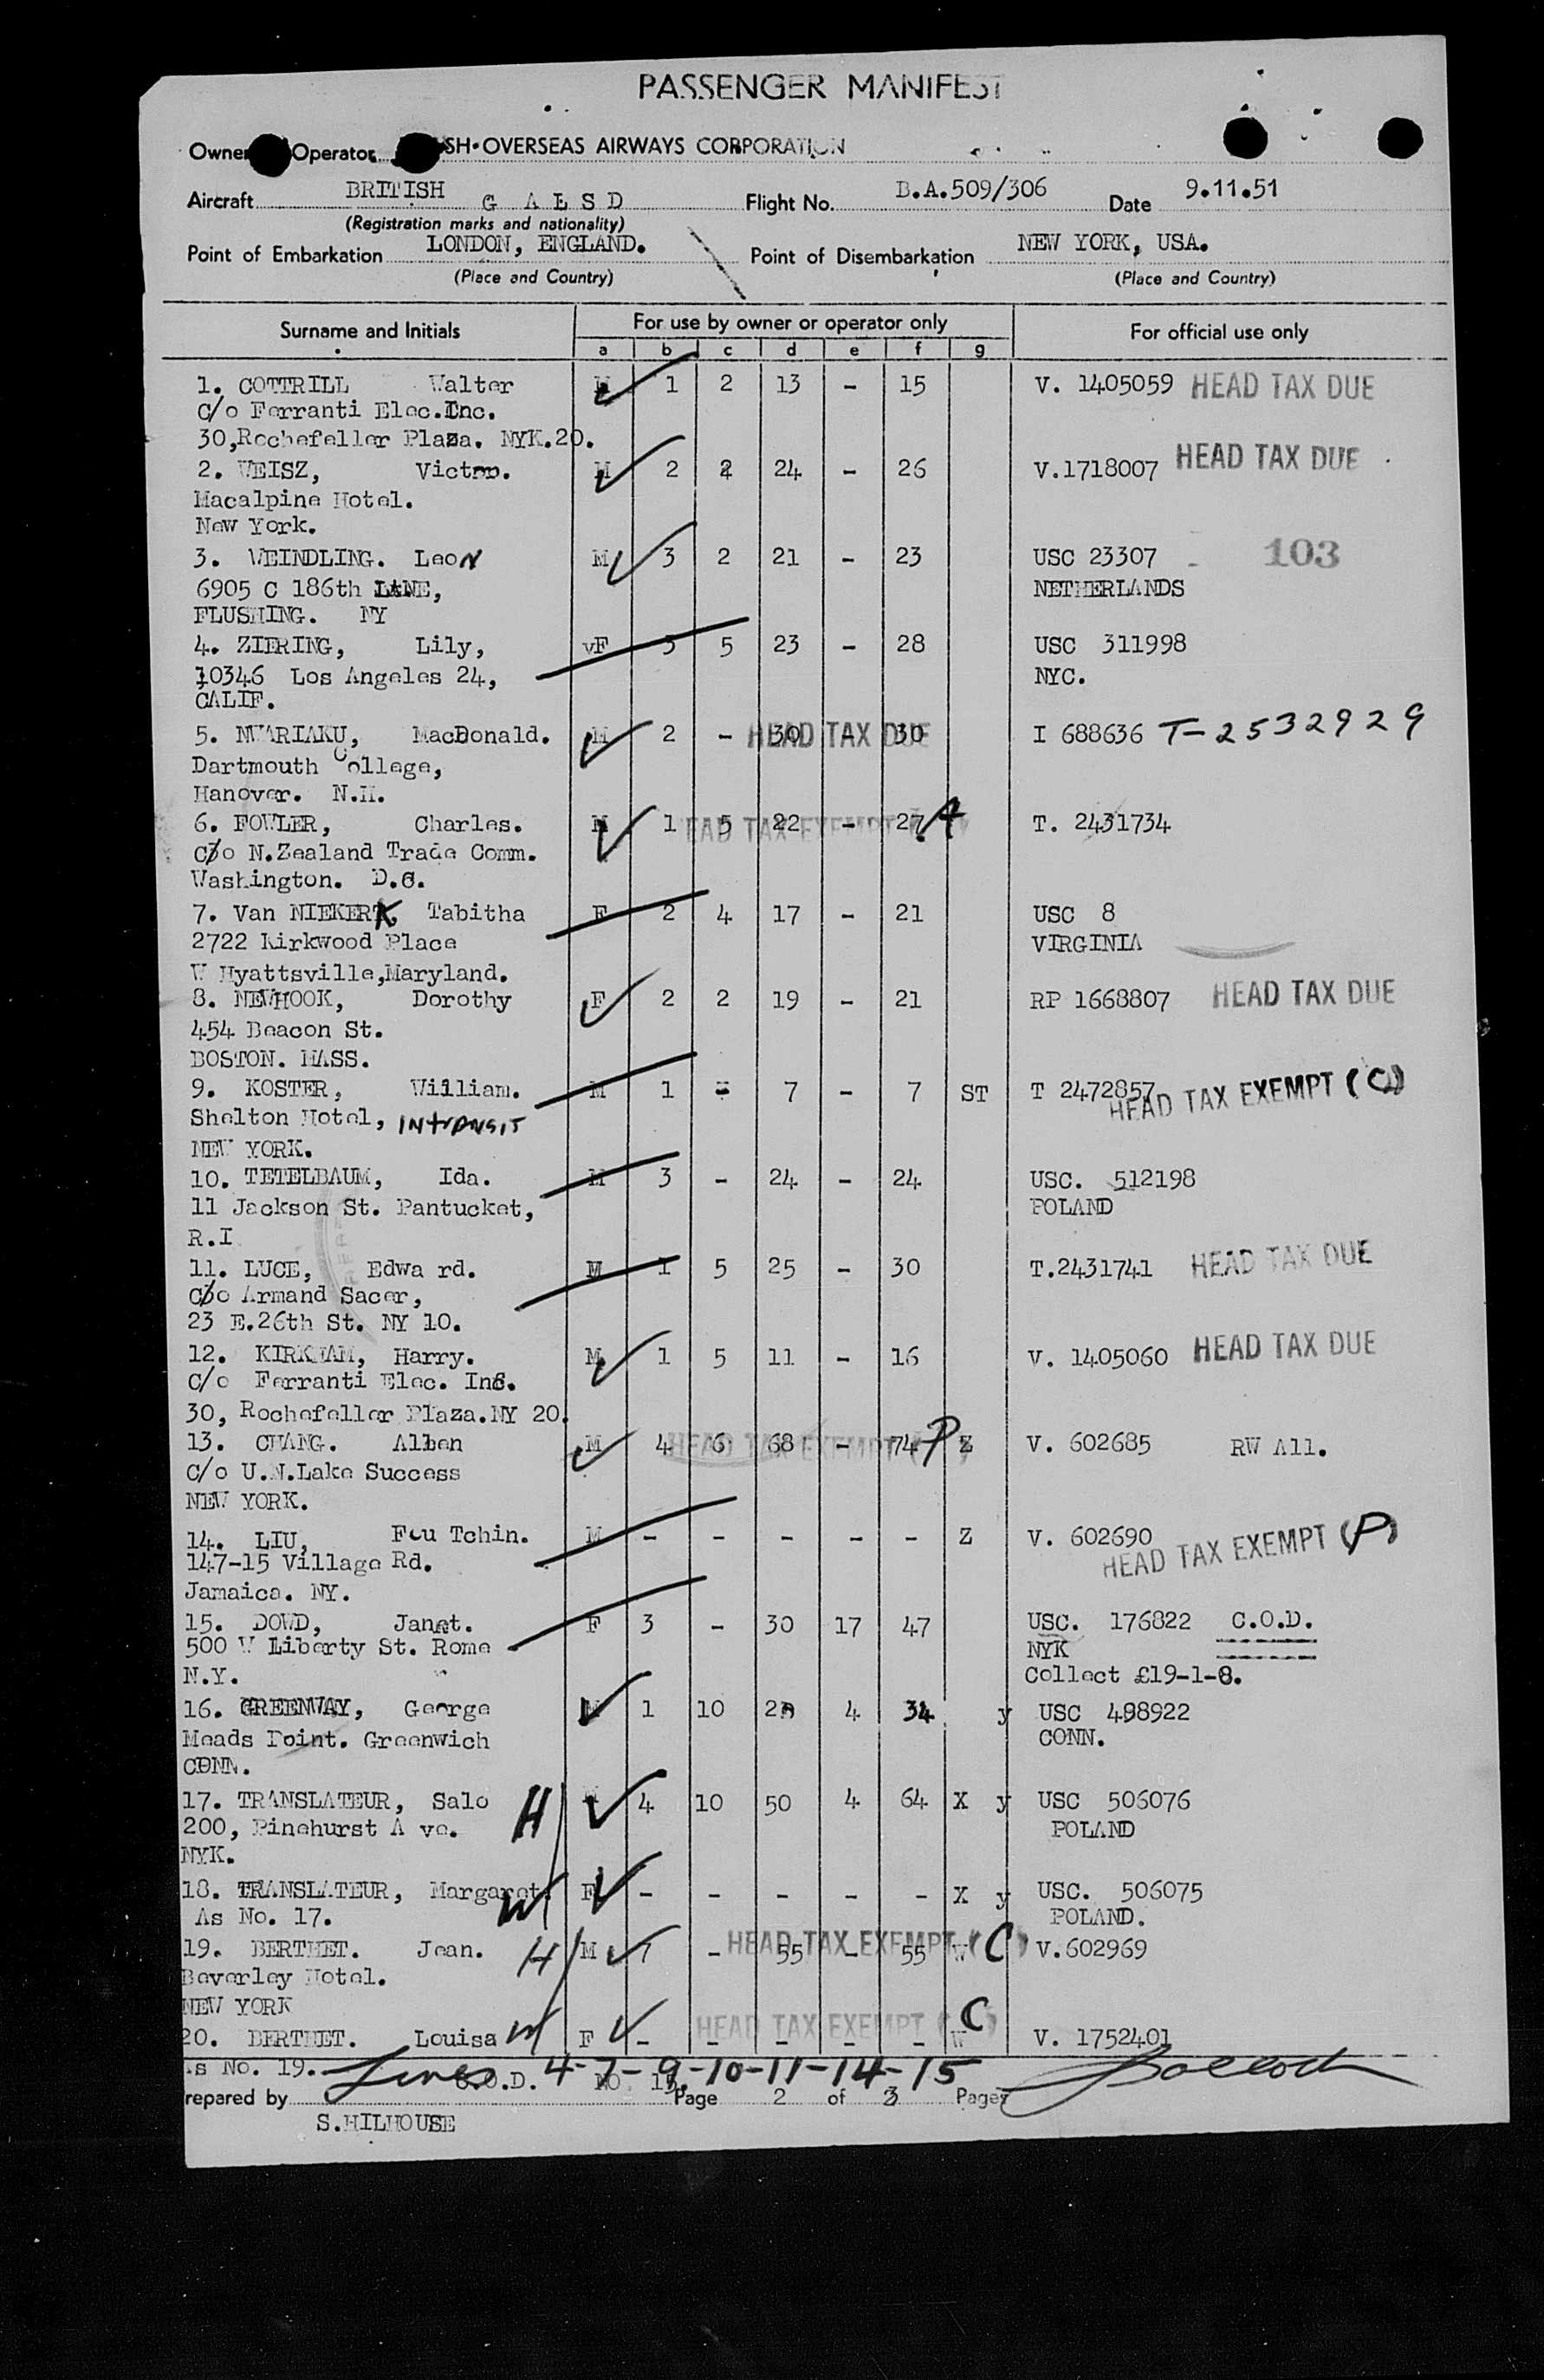 PASSENGER MANIFEST
Owner Operator SH OVERSEAS AIRWAYS CORPORATION
Aircraft BRITISH G A L S D Flight No. B.A.509/306 Date 9.11.51
(Registration marks and nationality)
Point of Embarkation LONDON, ENGLAND. Point of Disembarkation NEW YORK, USA.
(Place and Country) (Place and Country)
Surname and Initials For use by owner or operator only For official use only
a b c d e f g
1. COTTRILL Walter M 1 2 13 - 15 V. 1405059 HEAD TAX DUE
C/o Ferranti Elec.Inc.
30,Rochefeller Plaza. NYK.20.
2. WEISZ, Victor. M 2 2 24 - 26 V.1718007 HEAD TAX DUE
Macalpine Hotel.
New York.
3. WEINDLING. Leon M 3 2 21 - 23 USC 23307 - 103
6905 C 186th LANE, NETHERLANDS
FLUSHING. NY
4. ZIERING, Lily, vF 3 5 23 - 28 USC 311998
10346 Los Angeles 24, NYC.
CALIF.
5. MWARIAKU, MacDonald. M 2 - 30 - 30 HEAD TAX DUE I 688636 T-2532929
Dartmouth College,
Hanover. N.H.
6. FOWLER, Charles. M 1 5 22 - 27 HEAD TAX EXEMPT (A) T. 2431734
C/o N.Zealand Trade Comm.
Washington. D.C.
7. Van NIEKERK, Tabitha F 2 4 17 - 21 USC 8
2722 Kirkwood Place VIRGINIA
W Hyattsville,Maryland.
8. NEWHOOK, Dorothy F 2 2 19 - 21 RP 1668807 HEAD TAX DUE
454 Beacon St.
BOSTON. MASS.
9. KOSTER, William. M 1 - 7 - 7 ST T 2472857 HEAD TAX EXEMPT (C)
Shelton Hotel, INtrANSIT
NEW YORK.
10. TETELBAUM, Ida. M 3 - 24 - 24 USC. 512198
11 Jackson St. Pantucket, POLAND
R.I
11. LUCE, Edwa rd. M 1 5 25 - 30 T.2431741 HEAD TAX DUE
C/o Armand Sacer,
23 E.26th St. NY 10.
12. KIRKHAM, Harry. M 1 5 11 - 16 V. 1405060 HEAD TAX DUE
C/o Ferranti Elec. Inc.
30, Rochefeller Plaza.NY 20.
13. CHANG. Alben M 4 6 68 - 74 Z HEAD TAX EXEMPT (P) V. 602685 RW All.
C/o U.N.Lake Success
NEW YORK.
14. LIU, Fou Tchin. M - - - - - Z V. 602690
147-15 Village Rd. HEAD TAX EXEMPT (P)
Jamaica. NY.
15. DOWD, Janet. F 3 - 30 17 47 USC. 176822 C.O.D.
500 W Liberty St. Rome NYK
N.Y. Collect £19-1-8.
16. GREENWAY, George M 1 10 4 34 y USC 498922
Meads Point. Greenwich CONN.
CONN.
17. TRANSLATEUR, Salo H M 4 10 50 4 64 X y USC 506076
200, Pinehurst A ve. POLAND
NYK.
18. TRANSLATEUR, Margaret. W F - - - - - X y USC. 506075
As No. 17. POLAND.
19. BERTHET. Jean. H M - 55 - 55 W HEAD TAX EXEMPT (C) V.602969
Beverley Hotel.
NEW YORK
20. BERTHET. Louisa W F - - - - - W HEAD TAX EXEMPT (C) V. 1752401
As No. 19. Lines 4-7-9-10-11-14-15
C.O.D. NO 15.
repared by S.HILHOUSE Page 2 of 3 Pages